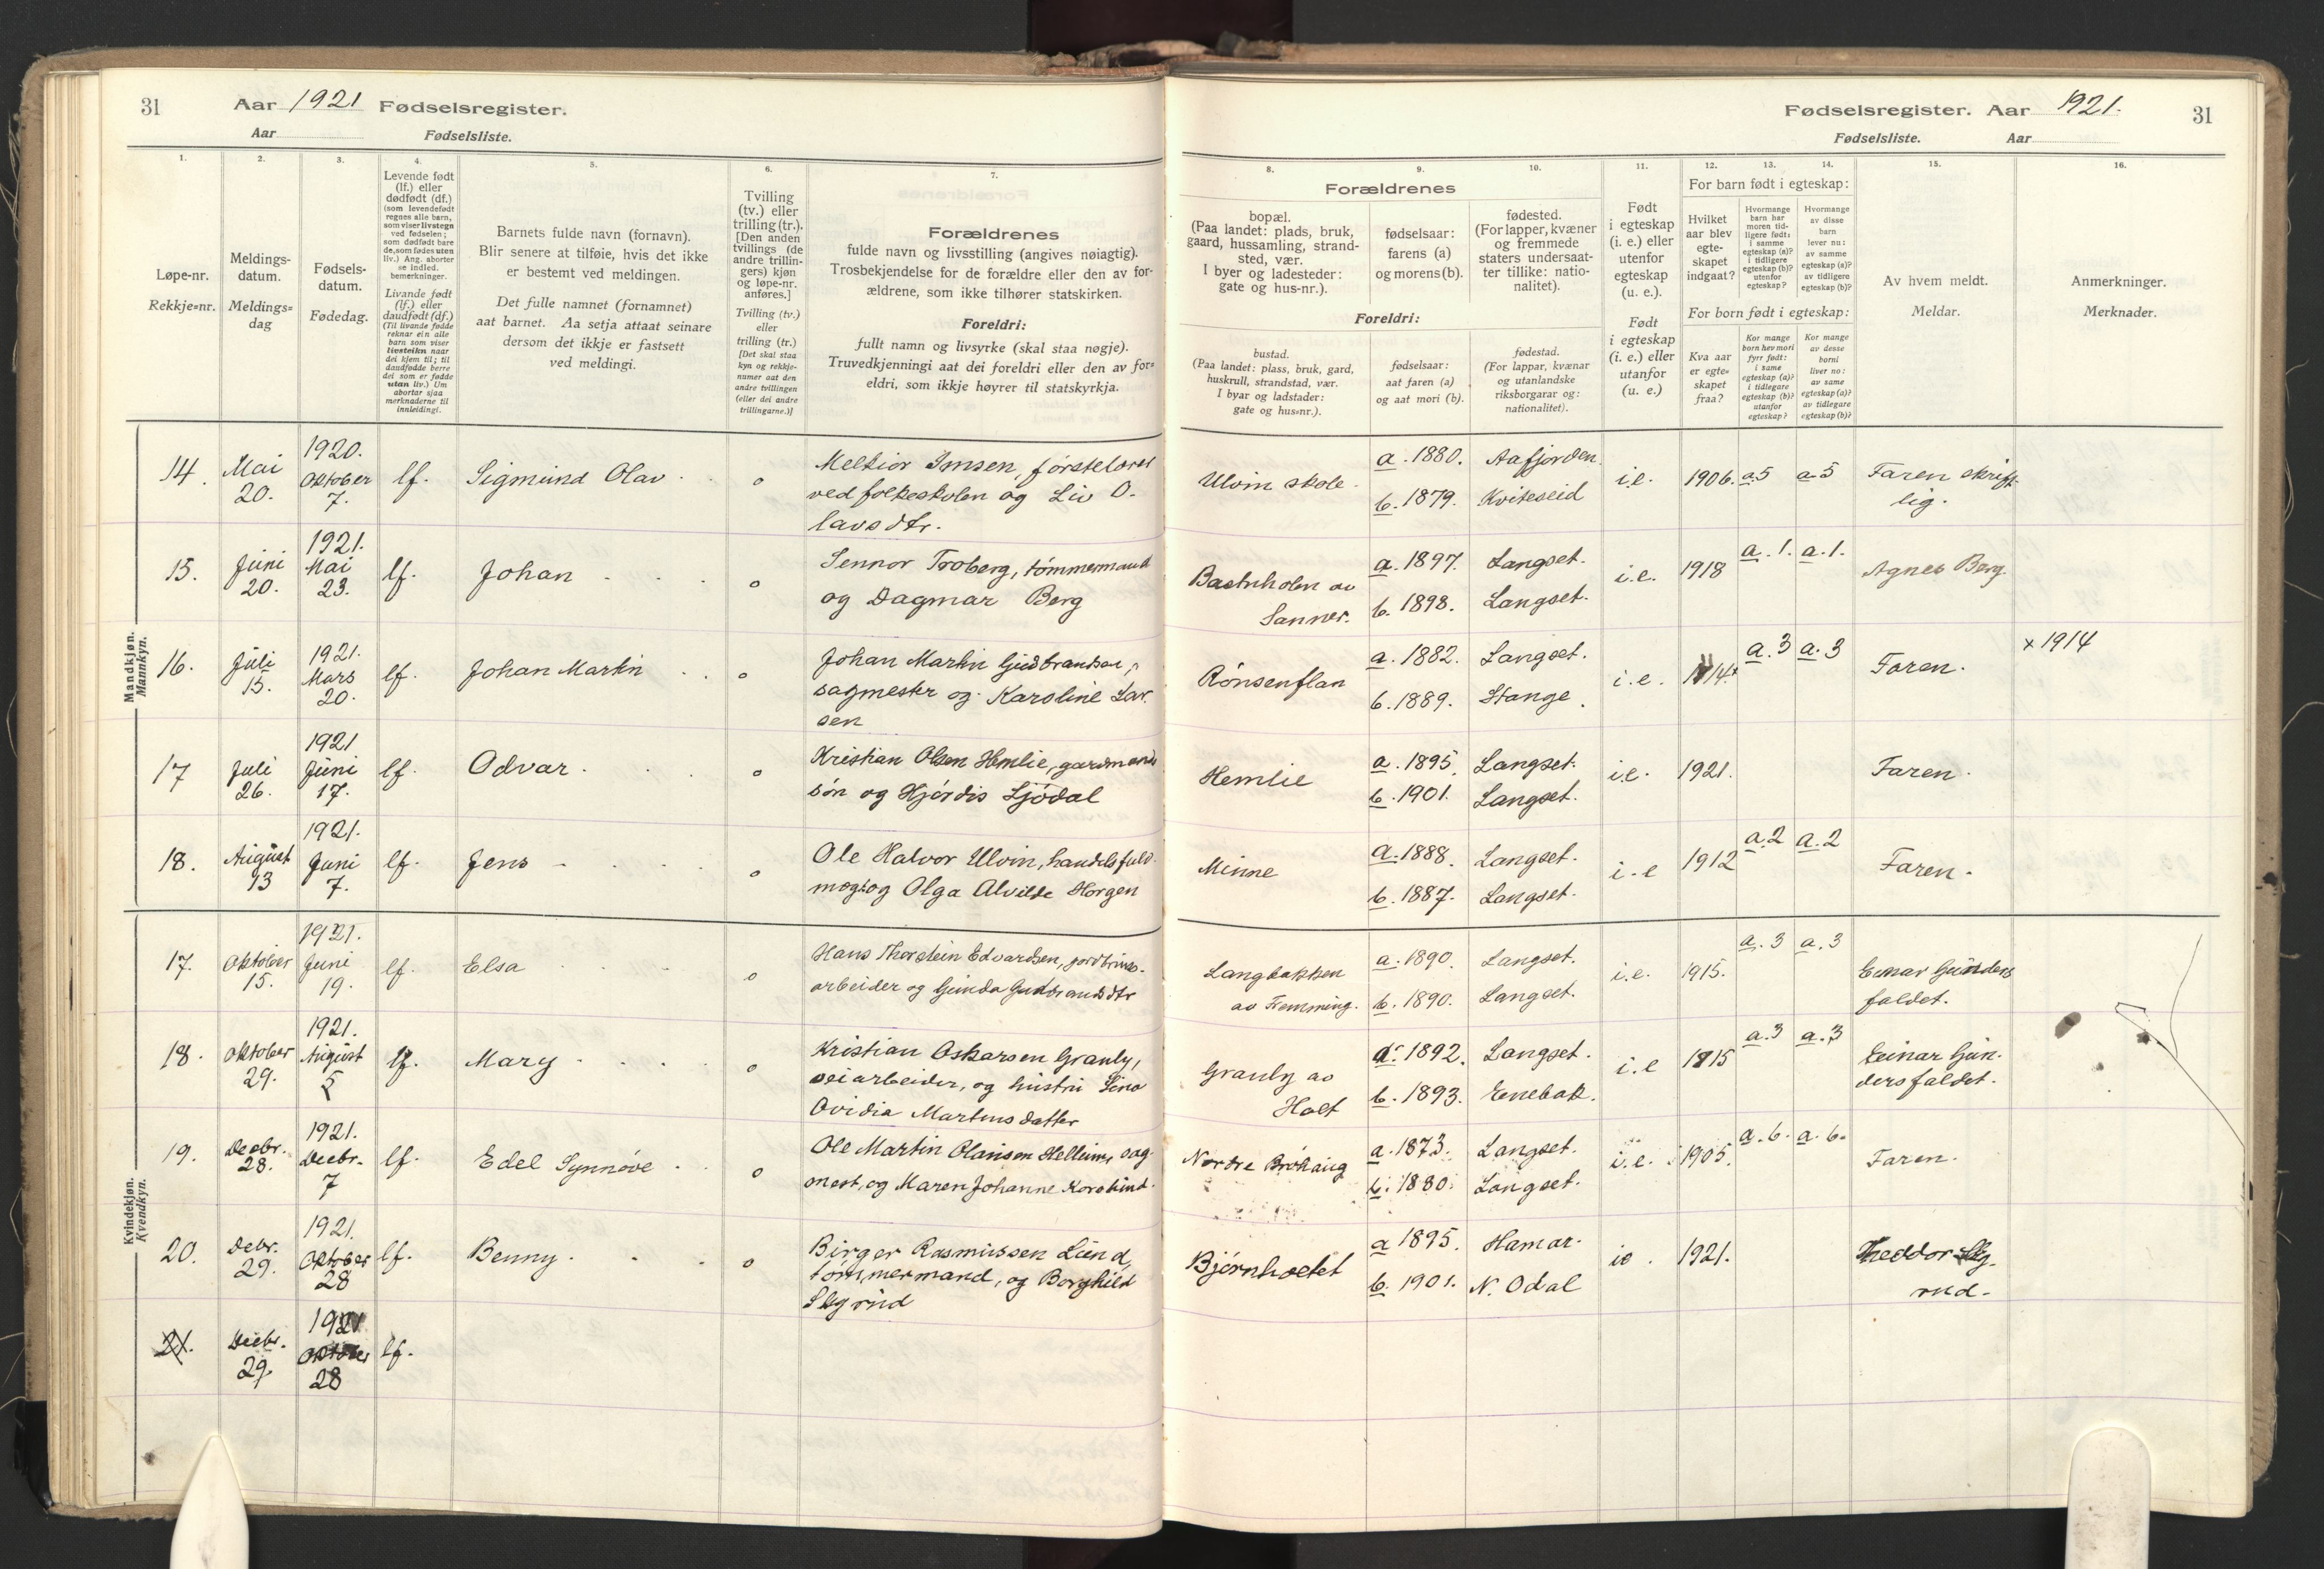 31 Aar 1921 Fødselsregister.
Aar Fødselsliste.
1. 2. 3. 4. 5. 6. 7.
Løpe-nr.
Rekkje=nr.
Meldings-
datum.
Meldings=
dag
Fødsels-
datum.
Fødedag.
Levende født
(lf.) eller
dødfødt (df.)
(som levendefødt
regnes alle barn,
som viser livstegn
ved fødselen;
som dødfødt bare
de, som fødes uten
liv.) Ang. aborter
se indled.
bemerkninger.
Livande født
(lf.) eller
daudfødt (df.)
(Til livande fødde
reknar ein alle
barn som viser
livsteikn naar
dei kjem til; til
daudfødde berre
dei som er fødde
utan liv.) Um
abortar sjaa
merknaderne til
innleidingi.
Barnets fulde navn (fornavn).
Blir senere at tilføie, hvis det ikke
er bestemt ved meldingen.
Det fulle namnet (fornamnet)
aat barnet. Aa setja attaat seinare
dersom det ikkje er fastsett
ved meldingi.
Tvilling
(tv.) eller
trilling (tr.).
[Den anden
tvillings (de
andre trillin-
gers) kjøn
og løpe-nr.
anføres.]
Tvilling (tv.)
eller
trilling (tr.)
[Det skal staa
kyn og rekkje-
numer aat den
andre tvillingen
(eller dei andre
trillingarne.)]
Forældrenes
fulde navn og livsstilling (angives nøiagtig).
Trosbekjendelse for de forældre eller den av for-
ældrene, som ikke tilhører statskirken.
Foreldri:
fullt namn og livsyrke (skal staa nøgje).
Truvedkjenningi aat dei foreldri eller den av for=
eldri, som ikkje høyrer til statskyrkja.
Mandkjøn.
Mannkyn.
14. Mai 20. 1920. Oktober 7. lf. Sigmund Olav o Meltior Imsen, førstelærer
ved folkeskolen og Liv O-
lavsdtr.
15. Juni 20. 1921. Mai 23. lf. Johan o Sennor Troberg, tømmermand
og Dagmar Berg
16. Juli 15. 1921. Mars 20. lf. Johan Martin o Johan Martin Gudbrandsen,
sagmester og Karoline Lar-
sen
17 Juli 26. 1921 Juni 17. lf. Odvar o Kristian Olsen Hemlie, gardmands
søn og Hjørdis Sjødal
18. August 13 1921. Juni 7. lf. Jens o Ole Halvor Ulvin, handelsfuld-
mægt. og Olga Alvilde Horgen
Kvindekjøn.
Kvendkyn.
17. Oktober 15. 1921. Juni 19. lf. Elsa o Hans Thorstein Edvardsen, jordbruks-
arbeider og Gunda Gudbrandsdtr
18. Oktober 29. 1921. August 5 lf. Mary o Kristian Oskarsen Granly,
veiarbeider, og hustru Lina
Ovidia Martinsdatter
19. Decbr. 28. 1921. Decbr. 7 lf. Edel Synnøve o Ole Martin Olausen Hellum, sag-
mest, og Maren Johanne Korslund
20. Debr. 29. 1921. Oktober 28 lf. Benny o Birger Rasmussen Lund,
tømmermand, og Borghild
Slgrud
21. Decbr. 29. 1921 Oktober 28 lf.
Fødselsregister. Aar 1921. 31
Fødselsliste. Aar
8. 9. 10. 11. 12. 13. 14. 15. 16.
Forældrenes
bopæl.
(Paa landet: plads, bruk,
gaard, hussamling, strand-
sted, vær.
I byer og ladesteder:
gate og hus-nr.).
fødselsaar:
farens (a)
og morens (b).
fødested.
(For lapper, kvæner
og fremmede
staters undersaat-
ter tillike: natio-
nalitet).
Foreldri:
bustad.
(Paa landet: plass, bruk, gard,
huskrull, strandstad, vær.
I byar og ladstader:
gate og hus=nr.).
fødselsaar:
aat faren (a)
og aat mori (b).
fødestad.
(For lappar, kvænar
og utanlandske
riksborgarar og:
nationalitet).
Født
i egteskap
(i. e.) eller
utenfor
egteskap
(u. e.).
Født
i egteskap
(i. e.) eller
utanfor
(u. e.)
For barn født i egteskap:
Hvilket
aar blev
egte-
skapet
indgaat?
Hvormange
barn har
moren tid-
ligere født:
i samme
egteskap (a)?
i tidligere
egteskap (b)?
utenfor
egteskap?
Hvormange
av disse
barn
lever nu:
av samme
egteskap (a)?
av tidligere
egteskap (b)?
For born født i egteskap:
Kva aar
er egte=
skapet
fraa?
Kor mange
born hev mori
fyrr født:
i same
egteskap (a)?
i tidlegare
egteskap (b)?
utanfor
egteskap?
Kor mange
av desse
borni
liver no:
av same
egteskap (a)?
av tidlegare
egteskap (b)?
Av hvem meldt.
Meldar.
Anmerkninger.
Merknader.
Ulvin skole a. 1880. Aafjorden. i.e. 1906. a.5 a.5 Faren skrift-
b. 1879. Kviteseid lig.
Bastnholen av a. 1897. Langset. i.e. 1918 a. 1. a. 1. Agnes Berg.
Sanner. b. 1898. Langset.
Rønsenflan a. 1882. Langset. i.e. 1914x a. 3 a. 3 Faren. x 1914
b. 1889. Stange.
Hemlie a. 1895. Langset. i.e. 1921. Faren.
b. 1901. Langset.
Minne a. 1888. Langset. i.e 1912 a. 2 a. 2 Faren.
b. 1887. Langset.
Langbakken a. 1890. Langset. i.e. 1915. a. 3 a. 3 Einar Gunders
av Fremming. b. 1890. Langset. faldet.
Granly av a. 1892. Langset. i.e 1915 a. 3 a. 3 Einar Gun-
Holt b. 1893. Enebak. dersfaldet.
Nordre Brøhaug a. 1873. Langset. i.e. 1905. a. 6. a. 6. Faren.
b. 1880. Langset.
Bjørnholtet a 1895. Hamar. ie. 1921. Theodor Slg-
b. 1901. N. Odal rud.